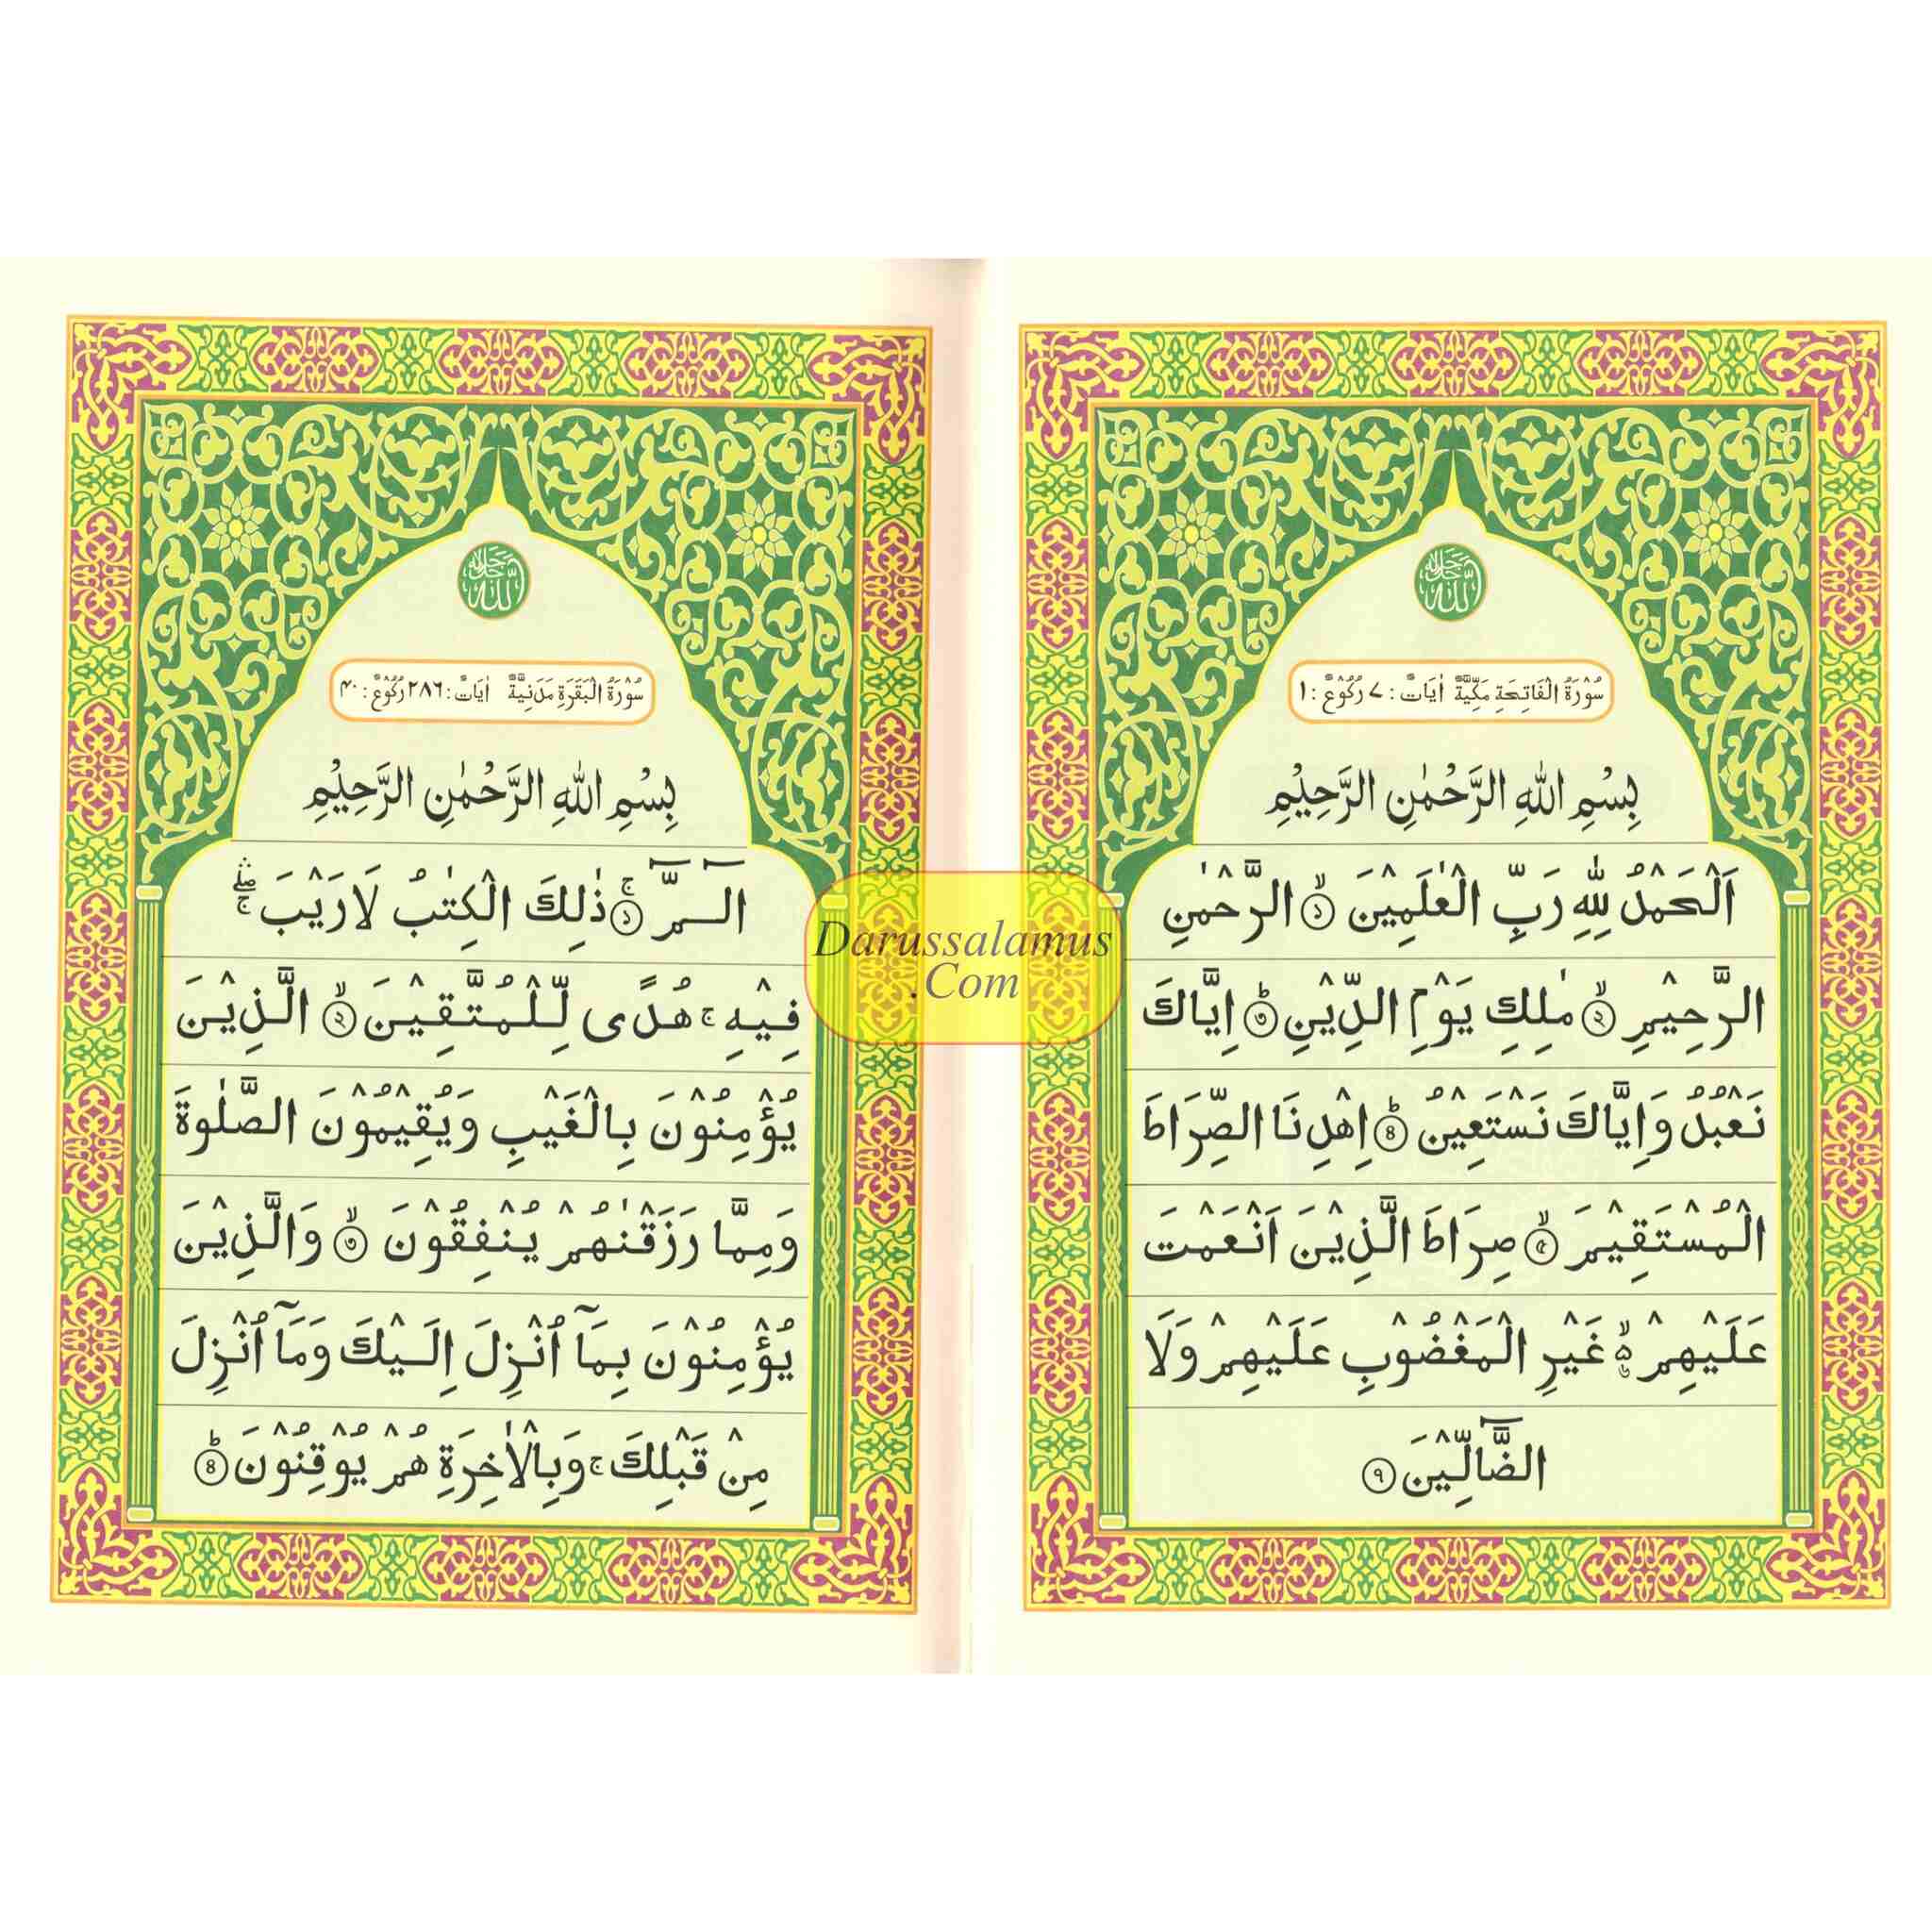 سُوْرَةُ الْفَاتِحَةِ مَكِّيَّةٌ اٰيَاتٌ : ٧ رُكُوْعٌ : ١
بِسْمِ اللّٰهِ الرَّحْمٰنِ الرَّحِيْمِ
اَلْحَمْدُ لِلّٰهِ رَبِّ الْعٰلَمِيْنَ ۙ﴿١﴾ الرَّحْمٰنِ
الرَّحِيْمِ ۙ﴿٢﴾ مٰلِكِ يَوْمِ الدِّيْنِ ؕ﴿٣﴾ اِيَّاكَ
نَعْبُدُ وَاِيَّاكَ نَسْتَعِيْنُ ؕ﴿٤﴾ اِهْدِنَا الصِّرَاطَ
الْمُسْتَقِيْمَ ۙ﴿٥﴾ صِرَاطَ الَّذِيْنَ اَنْعَمْتَ
عَلَيْهِمْ ۙ۬ غَيْرِ الْمَغْضُوْبِ عَلَيْهِمْ وَلَا
الضَّآلِّيْنَ ﴿٩﴾
سُوْرَةُ الْبَقَرَةِ مَدَنِيَّةٌ اٰيَاتٌ : ٢٨٦ رُكُوْعٌ : ٤٠
بِسْمِ اللّٰهِ الرَّحْمٰنِ الرَّحِيْمِ
الٓـمّٓ ۚ﴿١﴾ ذٰلِكَ الْكِتٰبُ لَا رَيْبَ ۛۖۚ
فِيْهِ ۚ هُدًى لِّلْمُتَّقِيْنَ ۙ﴿٢﴾ الَّذِيْنَ
يُؤْمِنُوْنَ بِالْغَيْبِ وَيُقِيْمُوْنَ الصَّلٰوةَ
وَمِمَّا رَزَقْنٰهُمْ يُنْفِقُوْنَ ۙ﴿٣﴾ وَالَّذِيْنَ
يُؤْمِنُوْنَ بِمَآ اُنْزِلَ اِلَيْكَ وَمَآ اُنْزِلَ
مِنْ قَبْلِكَ ۚ وَبِالْاٰخِرَةِ هُمْ يُوْقِنُوْنَ ؕ﴿٤﴾
Darussalamus
.Com